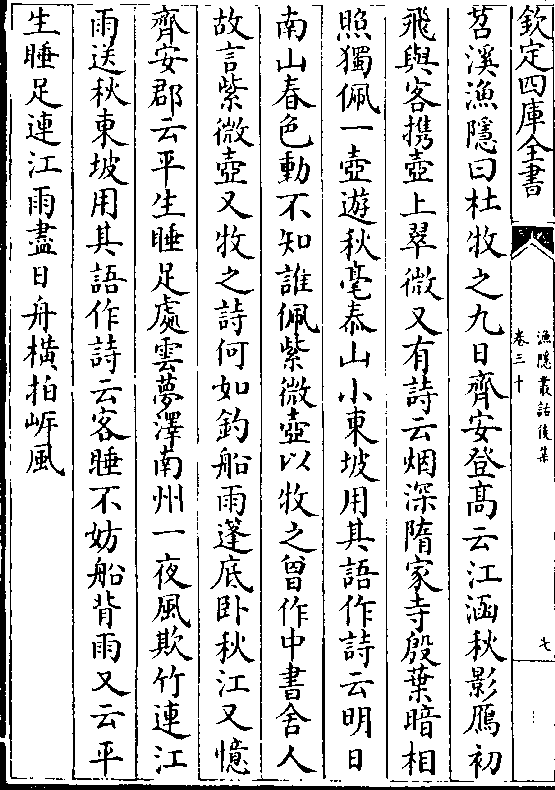 欽定四庫全書
漁隱叢話後集
卷三十
七
苕溪漁隱曰杜牧之九日齊安登高云江涵秋影鴈初
飛與客携壺上翠微又有詩云烟深隋家寺殷葉暗相
照獨佩一壺遊秋毫泰山小東坡用其語作詩云明日
南山春色動不知誰佩紫微壺以牧之曾作中書舍人
故言紫微壺又牧之詩何如釣船雨蓬底卧秋江又憶
齊安郡云平生睡足處雲夢澤南州一夜風欺竹連江
雨送秋東坡用其語作詩云客睡不妨船背雨又云平
生睡足連江雨盡日舟横拍岍風